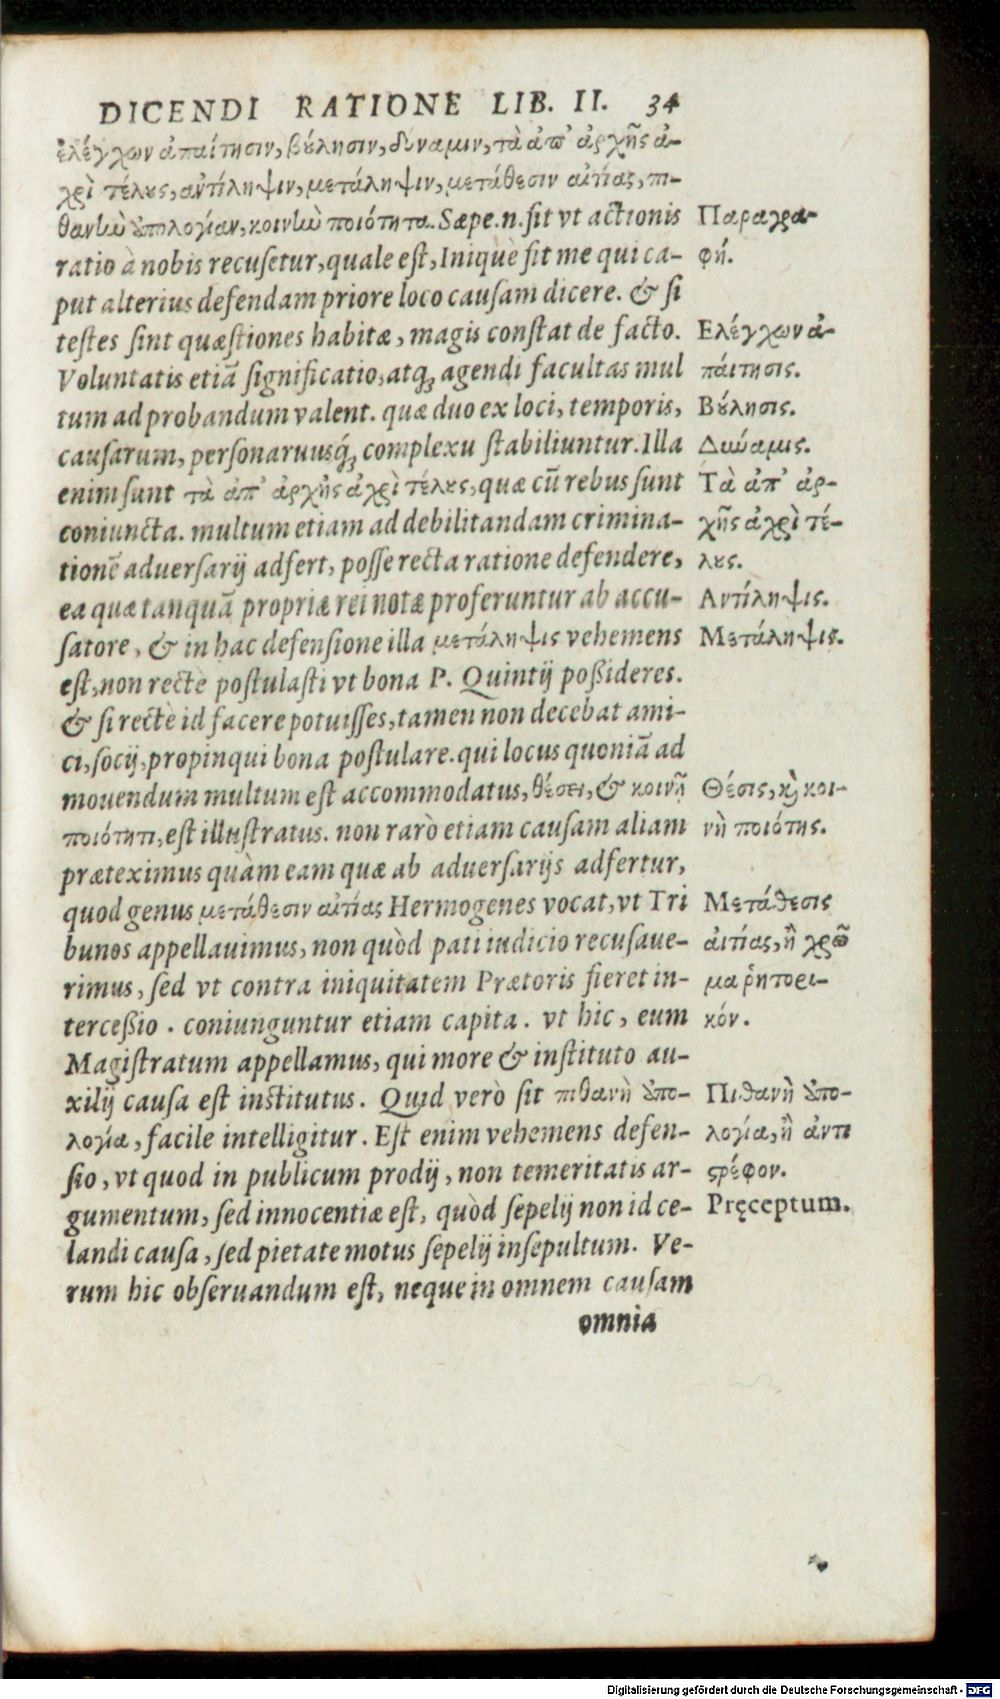 DICENDI RATIONE LIB. II. 34
ἐλέγχων ἀπαίτησιν, βούλησιν, δύναμιν, τὰ ἀπ᾽ ἀρχῆς ἀ-
χρὶ τέλους, ἀντίληψιν, μετάληψιν, μετάθεσιν αἰτίας, πι-
θανὴν ὑπολογίαν, κοινὴν ποιότητα. Sæpe.n.fit vt actionis
ratio à nobis recusetur, quale est, Iniquè fit me qui ca-
put alterius defendam priore loco causam dicere. & si
testes sint quæstiones habitæ, magis constat de facto.
Voluntatis etiã significatio, atq; agendi facultas mul
tum ad probandum valent. quæ duo ex loci, temporis,
causarum, personarumq́; complexu stabiliuntur. Illa
enim sunt τὰ ἀπ᾽ ἀρχῆς ἀχρὶ τέλους, quæ cũ rebus sunt
coniuncta. multum etiam ad debilitandam crimina-
tionẽ aduersarij adfert, posse recta ratione defendere,
ea quæ tanquã propriæ rei notæ proferuntur ab accu-
satore, & in hac defensione illa μετάληψις vehemens
est, non rectè postulasti vt bona P. Quintij possideres.
& si rectè id facere potuisses, tamen non decebat ami-
ci, socij, propinqui bona postulare. qui locus quoniã ad
mouendum multum est accommodatus, θέσει, & κοινῇ
ποιότητι, est illustratus. non rarò etiam causam aliam
præteximus quàm eam quæ ab aduersarijs adfertur,
quod genus μετάθεσιν αἰτίας Hermogenes vocat, vt Tri
bunos appellauimus, non quòd pati iudicio recusaue-
rimus, sed vt contra iniquitatem Prætoris fieret in-
tercessio. coniunguntur etiam capita. vt hic, eum
Magistratum appellamus, qui more & instituto au-
xilij causa est institutus. Quid verò sit πιθανὴ ὑπο-
λογία, facile intelligitur. Est enim vehemens defen-
sio, vt quod in publicum prodij, non temeritatis ar-
gumentum, sed innocentiæ est, quòd sepelij non id ce-
landi causa, sed pietate motus sepelij insepultum. Ve-
rum hic obseruandum est, neque in omnem causam
omnia
Παραγρα-
φή.
Ελέγχων ἀ-
πάιτησις.
Βούλησις.
Δύναμις.
Τὰ ἀπ᾽ ἀρ-
χῆς ἀχρὶ τέ-
λους.
Αντίληψις.
Μετάληψις.
Θέσις, καὶ κοι-
νὴ ποιότης.
Μετάθεσις
ἀιτίας, ἢ χρῶ
μα ῥητορι-
κόν.
Πιθανὴ ὑπο-
λογία, ἢ ἀντι
στρέφον.
Pręceptum.
Digitalisierung gefördert durch die Deutsche Forschungsgemeinschaft - DFG